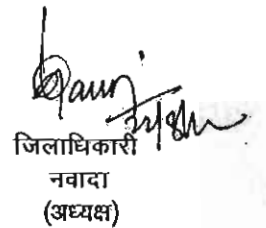 जिलाधिकारी
नवादा
(अध्यक्ष)